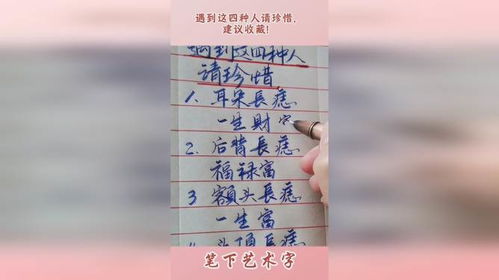 遇到这四种人请珍惜,
建议收藏!
遇到这四种人
请珍惜
1、耳朵長痣
一生財字
2、后背長痣
福禄富
3 額头長痣
一生富
4 头顶長痣
笔下艺术字